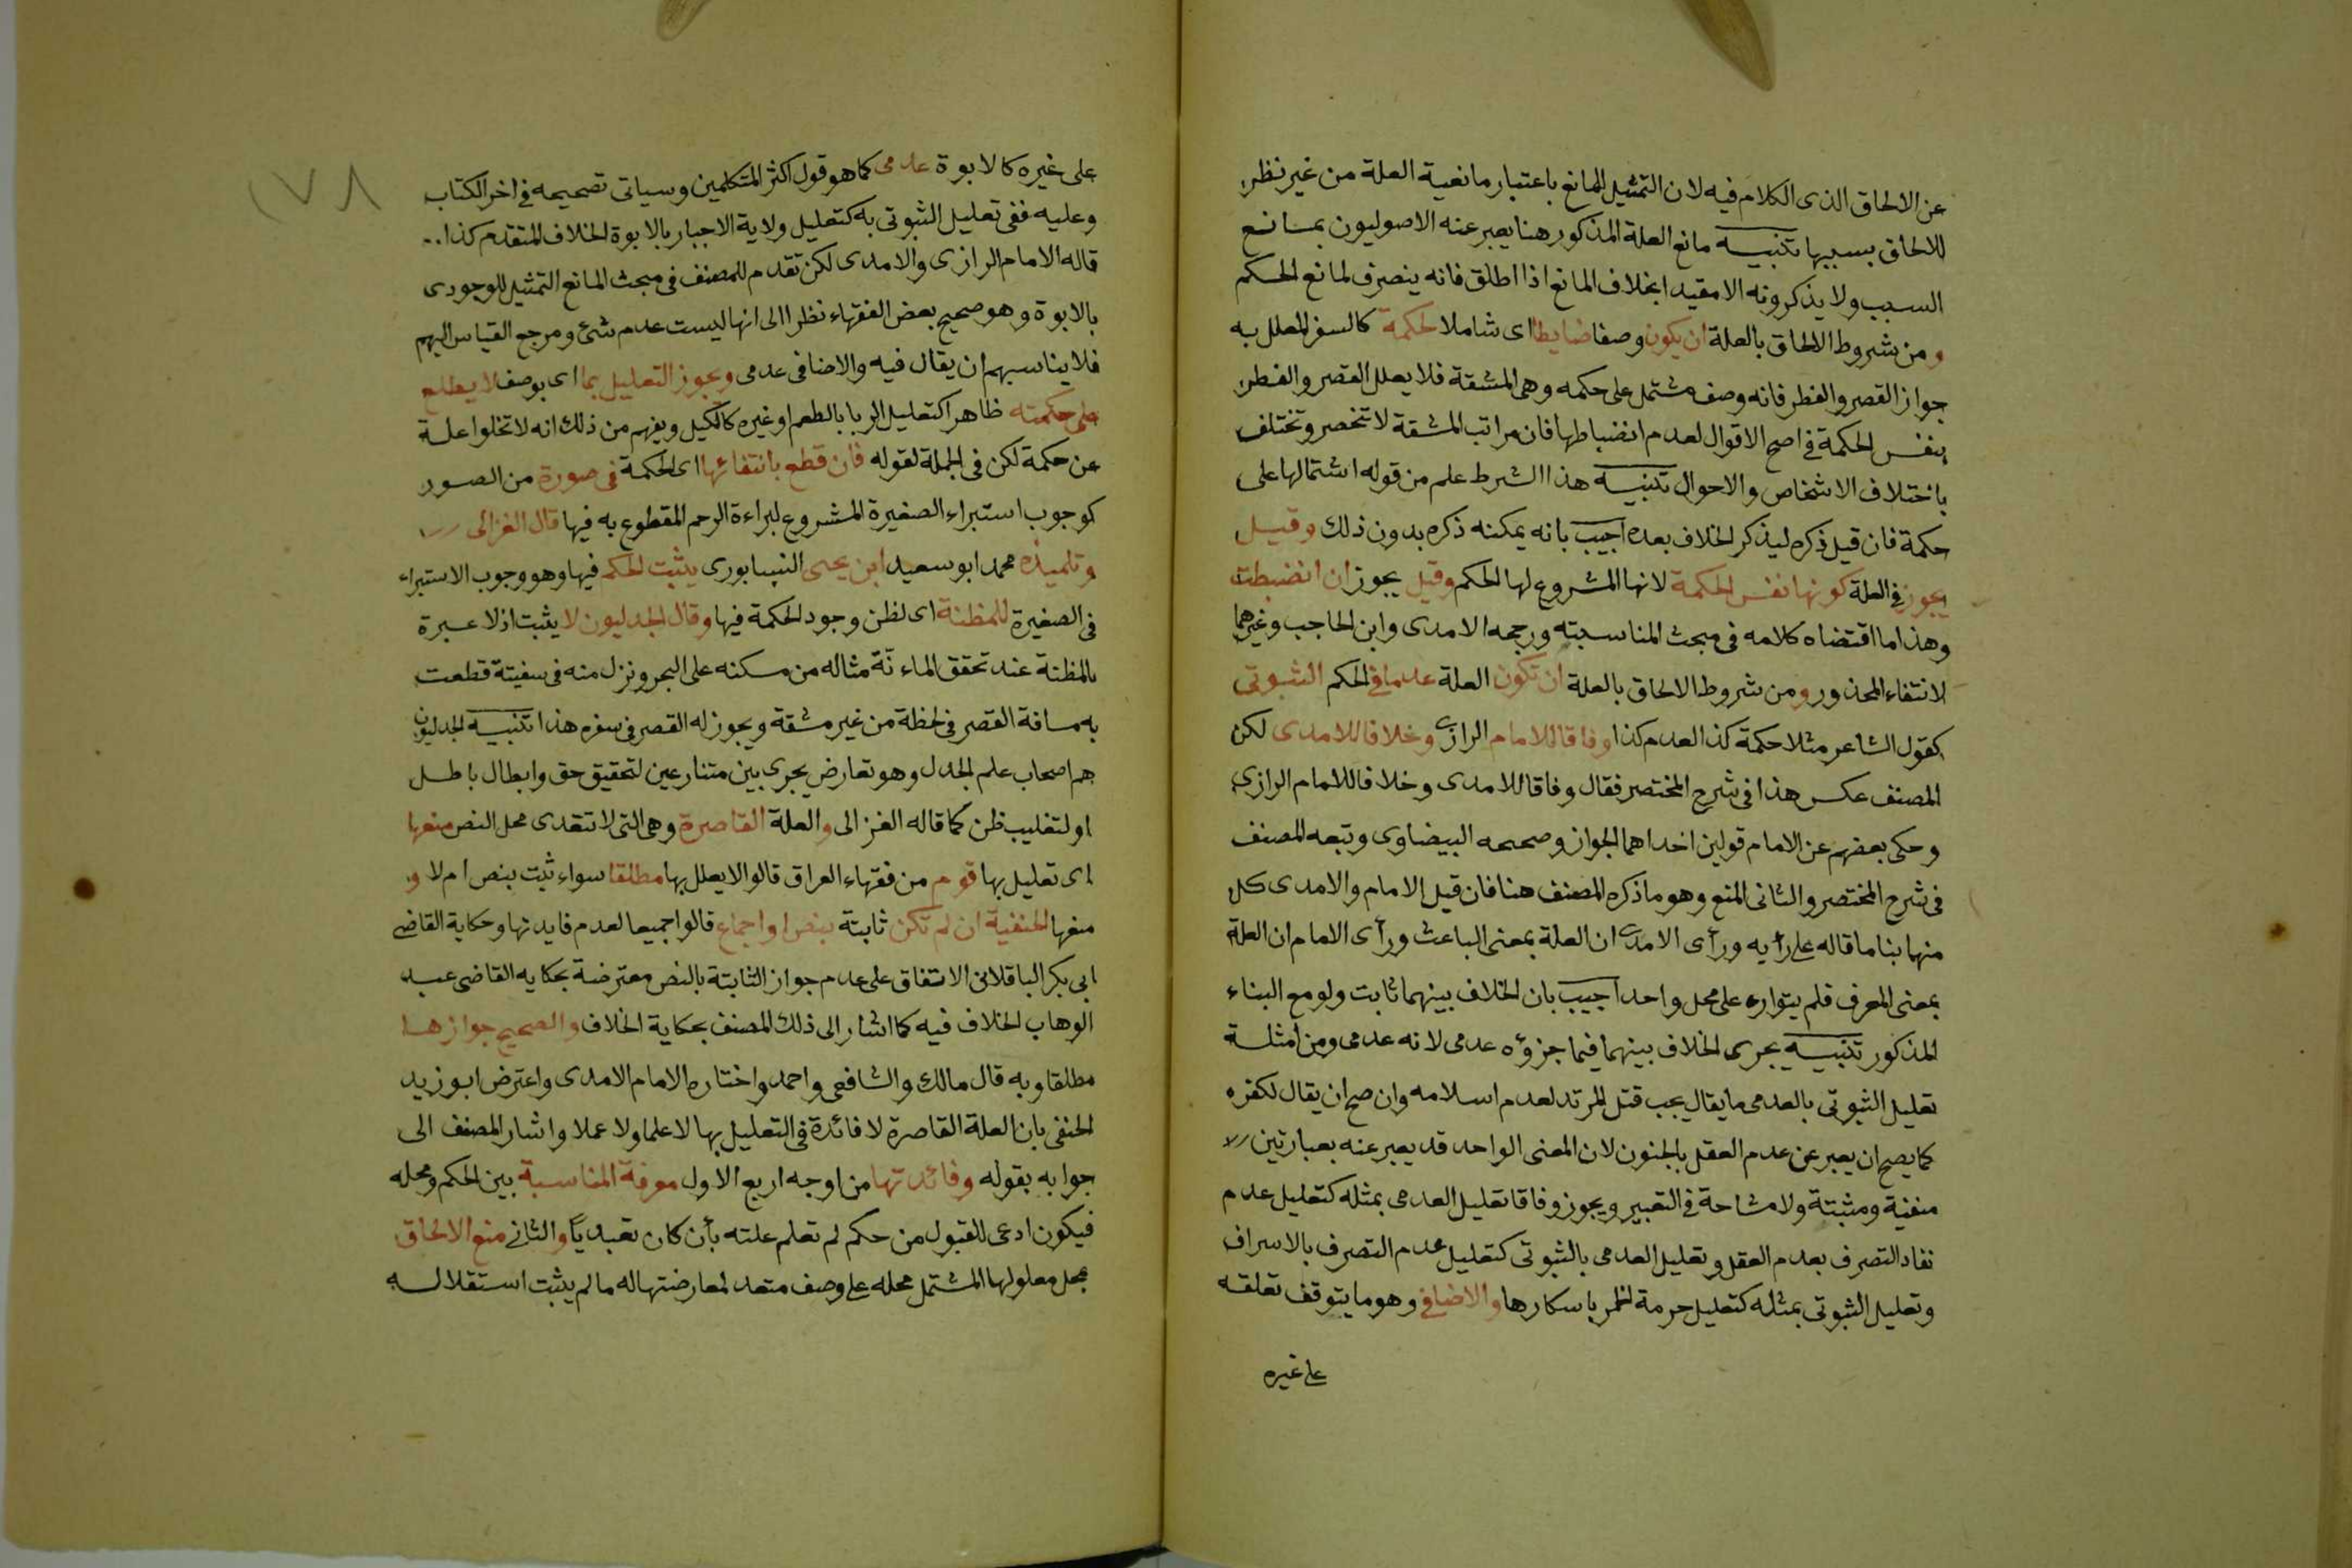 عن الالحاق الذى الكلام فيه لان التمثيل للمانع باعتبار مانعية العلة من غير نظر
للالحاق بسببها تنبيه مانع العلة المذكور هنا يعبر عنه الاصوليون بمانع
السبب ولا يذكرونه الا مقيدا بخلاف المانع اذا اطلق فانه ينصرف لمانع الحكم
و من شروط الالحاق بالعلة ان يكون وصفا ضابطا اى شاملا لحكمة كالسفر المعلل به
جواز القصر والفطر فانه وصف مشتمل على حكمه وهى المشقة فلا يعلل القصر والفطر
بنفس الحكمة فى اصح الاقوال لعدم انضباطها فان مراتب المشقة لا تنحصر وتختلف
باختلاف الاشخاص والاحوال تنبيه هذا الشرط علم من قوله اشتمالها على
حكمة فان قيل ذكره ليذكر الخلاف بعده اجيب بانه يمكنه ذكره بدون ذلك وقيل
يجوز فى العلة كونها نفس الحكمة لانها المشروع لها الحكم وقيل يجوز ان انضبطت
وهذا ما اقتضاه كلامه فى مبحث المناسبته ورجحه الامدى وابن الحاجب وغيرهما
لانتفاء المحذور و ومن شروط الالحاق بالعلة ان تكون العلة عدما فى الحكم الثبوتى
كقول الشاعر مثلا حكمة كذا لعدم كذا وفاقا للامام الرازى وخلافا للامدى لكن
المصنف عكس هذا فى شرح المختصر فقال وفاقا للامدى وخلافا للامام الرازى
وحكى بعضهم عن الامام قولين احداهما الجواز وصححه البيضاوى وتبعه المصنف
فى شرح المختصر والثانى المنع وهو ما ذكره المصنف هنا فان قيل الامام والامدى كل
منهما بنا ما قاله على رأيه ورأى الامدى ان العلة بمعنى الباعث ورأى الامام ان العلة
بمعنى المعرف فلم يتوارد على محل واحد اجيب بان الخلاف بينهما ثابت ولو مع البناء
المذكور تنبيه يجرى الخلاف بينهما فيما جزؤه عدمى لانه عدمى ومن امثلة
تعليل الثبوتى بالعدمى ما يقال يجب قتل المرتد لعدم اسلامه وان صح ان يقال لكفره
كما يصح ان يعبر عن عدم العقل بالجنون لان المعنى الواحد قد يعبر عنه بعبارتين
منفية ومثبتة ولا مشاحة فى التعبير ويجوز وفاقا تعليل العدمى بمثله كتعليل عدم
نفاد التصرف بعدم العقل وتعليل العدمى بالثبوتى كتعليل عدم التصرف بالاسراف
وتعليل الثبوتى بمثله كتعليل حرمة الخمر باسكارها والاضافى وهو ما يتوقف تعلقه
على غيره
١٧٨
على غيره كالابوة عدمى كما هو قول اكثر المتكلمين وسياتى تصحيحه فى اخر الكتاب
وعليه ففى تعليل الثبوتى به كتعليل ولاية الاجبار بالابوة الخلاف المتقدم كذا
قاله الامام الرازى والامدى لكن تقدم للمصنف فى مبحث المانع التمثيل للوجودى
بالابوة وهو صحيح بعض الفقهاء نظرا الى انها ليست عدم شئ ومرجع القياس اليهم
فلا يناسبهم ان يقال فيه والاضافى عدمى ويجوز التعليل بما اى بوصف لا يطلع
على حكمته ظاهرا كتعليل الربا بالطعم او غيره كالكيل ويفهم من ذلك انه لا تخلوا علة
عن حكمة لكن فى الجملة لقوله فان قطع بانتفائها اى الحكمة فى صورة من الصور
كوجوب استبراء الصغيرة المشروع لبراءة الرحم المقطوع به فيها قال الغزالى
وتلميذه محمد ابو سعيد ابن يحيى النيسابورى يثبت الحكم فيها وهو وجوب الاستبراء
فى الصغيرة للمظنة اى لظن وجود الحكمة فيها وقال الجدليون لا يثبت اذ لا عبرة
بالمظنة عند تحقق الماءنة مثاله من مسكنه على البحر ونزل منه فى سفينة قطعت
به مسافة القصر فى لحظة من غير مشقة ويجوز له القصر فى سفره هذا تنبيه الجدليون
هم اصحاب علم الجدل وهو تعارض يجرى بين متنازعين لتحقيق حق وابطال باطل
او لتغليب ظن كما قاله الغزالى والعلة القاصرة وهى التى لا تتعدى محل النص منعها
اى تعليل بها قوم من فقهاء العراق قالوا لا يعلل بها مطلقا سواء ثبت بنص ام لا و
منعها الحنفية ان لم تكن ثابتة بنص او اجماع قالوا جميعا لعدم فايدتها وحكاية القاضى
ابى بكر الباقلانى الاتفاق على عدم جواز الثابتة بالنص معترضة بحكايه القاضى عبد
الوهاب الخلاف فيه كما اشار الى ذلك المصنف بحكاية الخلاف والصحيح جوازها
مطلقا وبه قال مالك والشافعى واحمد واختاره الامام الامدى واعترض ابو زيد
الحنفى بان العلة القاصرة لا فائدة فى التعليل بها لا علما ولا عملا واشار المصنف الى
جوابه بقوله وفائدتها من اوجه اربع الاول معرفة المناسبة بين الحكم ومحله
فيكون ادعى للقبول من حكم لم تعلم علته بأن كان تعبديًا والثانى منع الالحاق
بمحل معلولها المشتمل محله على وصف متعد لمعارضتها له ما لم يثبت استقلاله